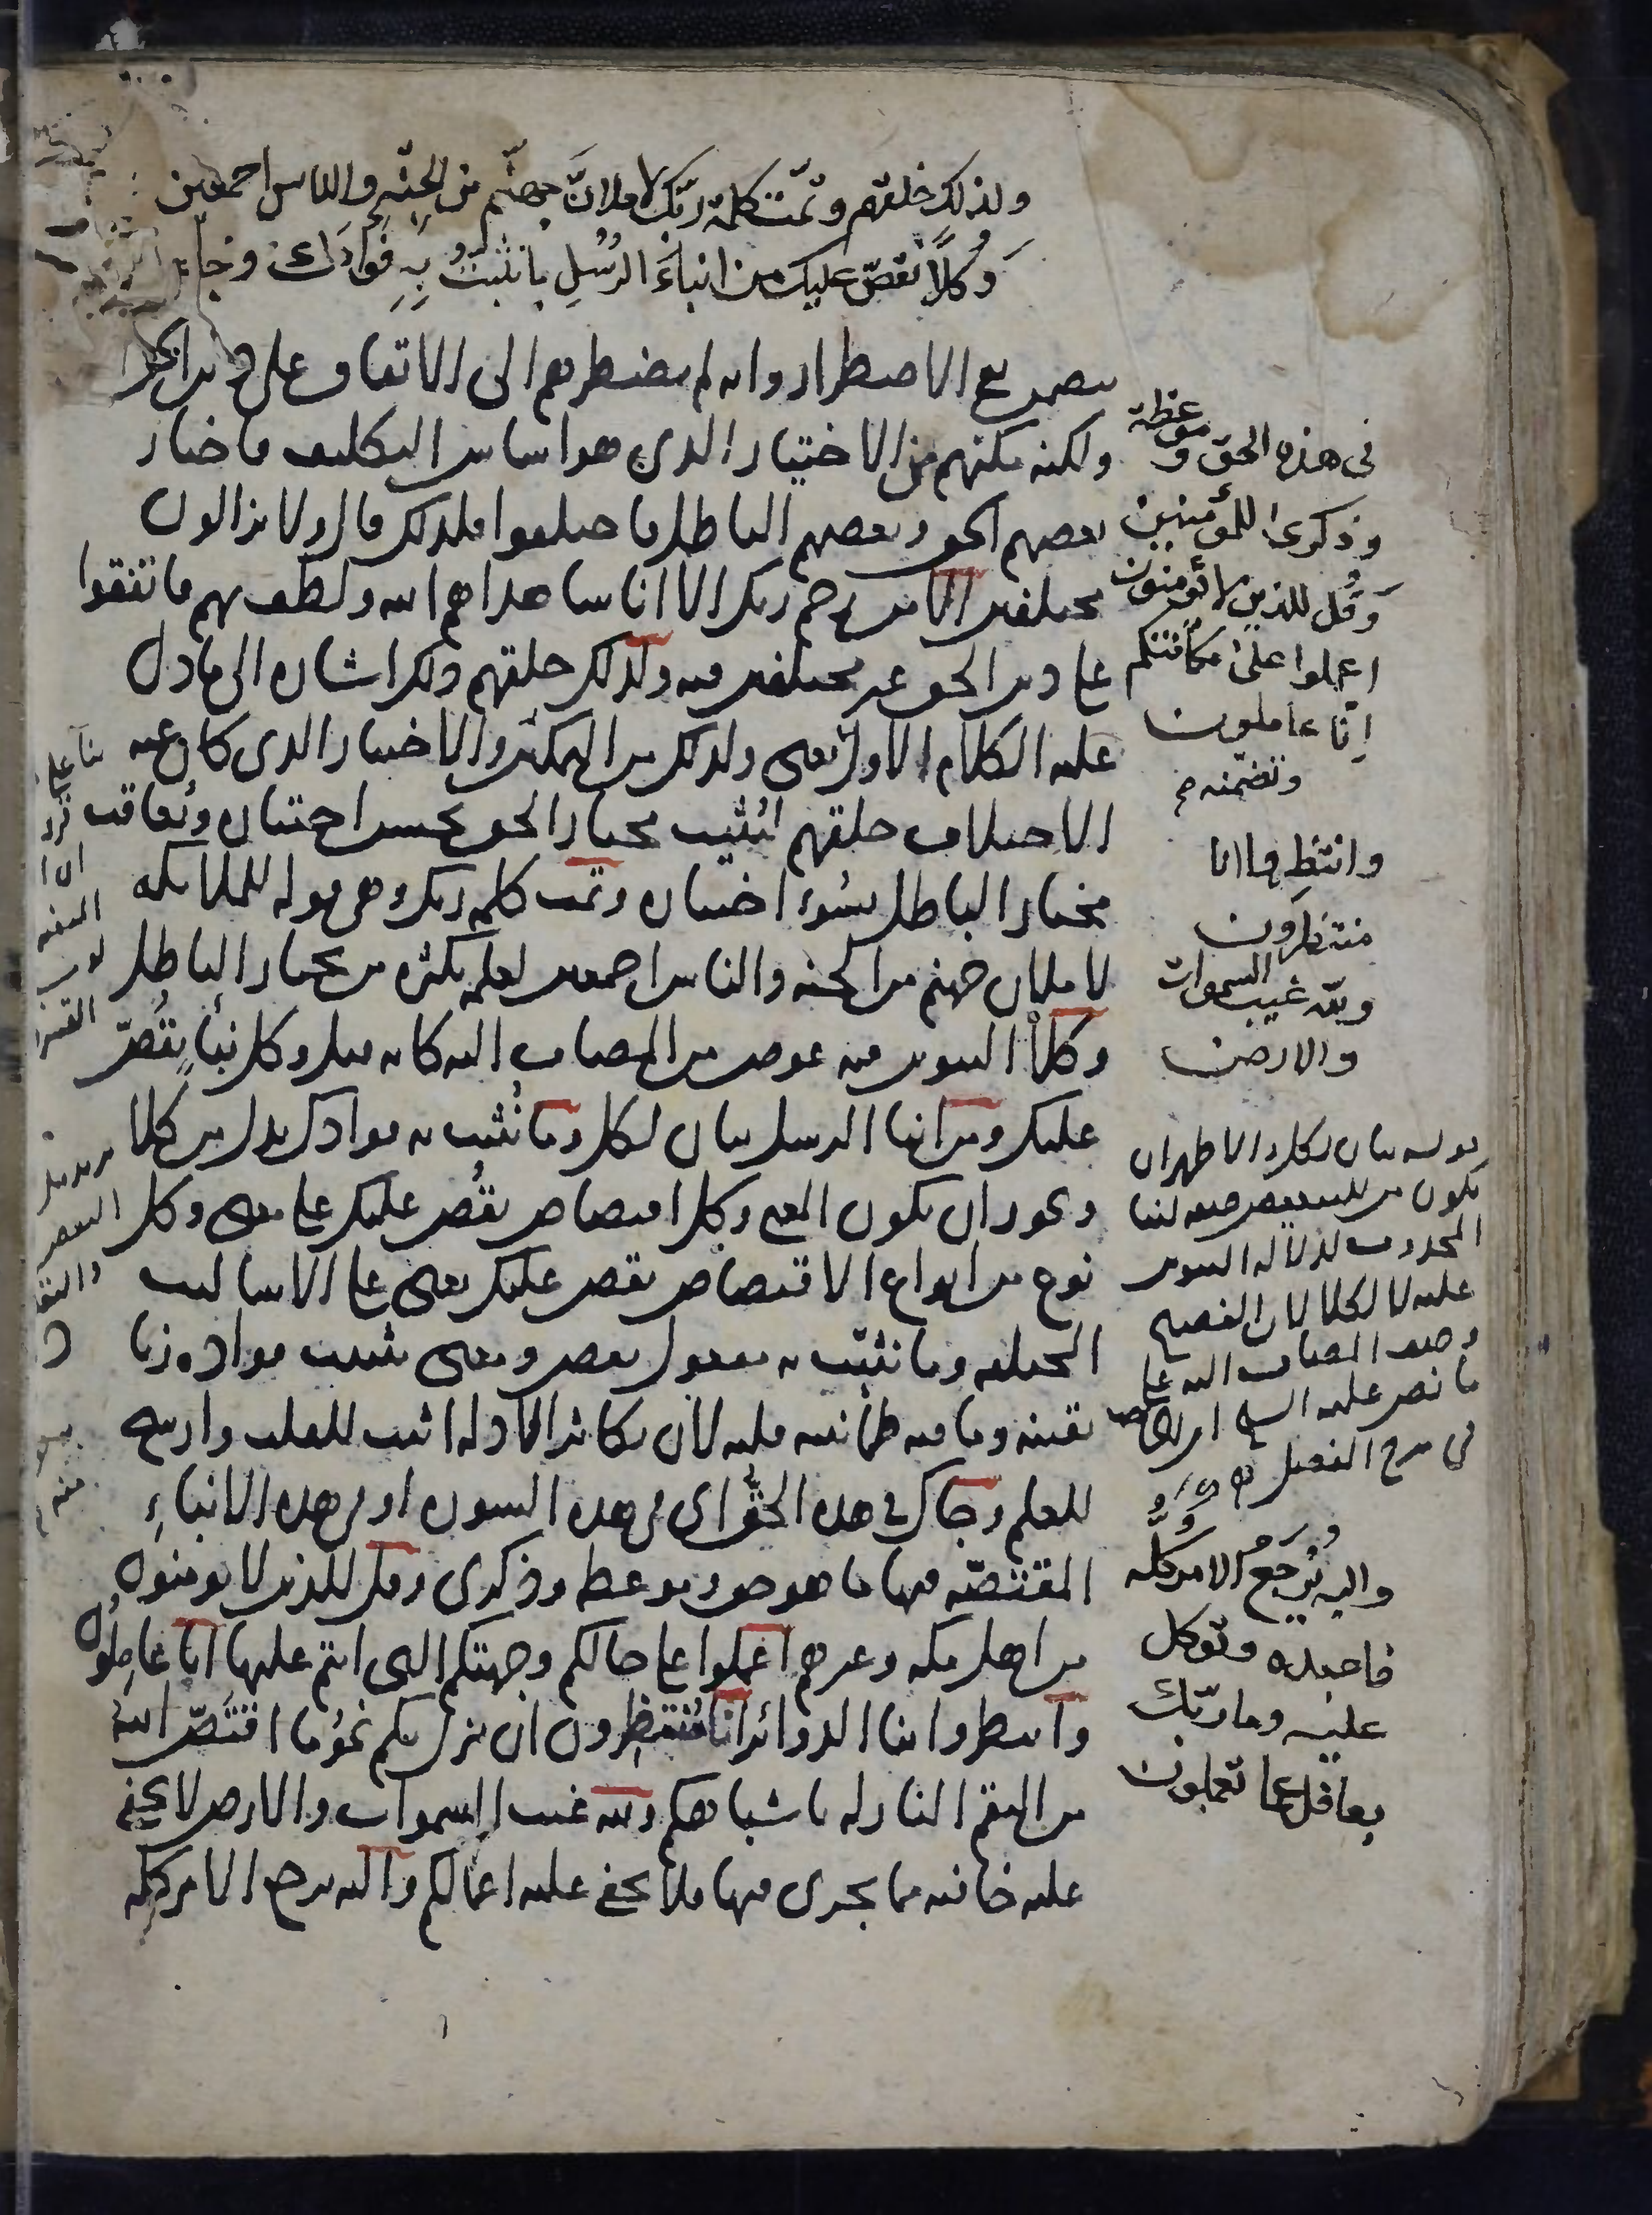 ولذلك خلقهم وتمّت كلمة ربّك لاملانّ جهنّم من الجنّة والناس اجمعين
وَكلاًّ نقصّ عليك من انباءَ الرُسُلِ ما نثبتُ بِهِ فؤادَك وجاءك
يتضمن نفي الاضطرار وانه لم يضطرهم الى الاتفاق على دين الحق
ولكنه مكنهم من الاختيار الذي هو اساس التكليف فاختار
بعضهم الحق وبعضهم الباطل فاختلفوا فلذلك قال ولا يزالون
مختلفين الا من رحم ربك الا اناسا هداهم الله ولطف بهم فاتفقوا
على دين الحق غير مختلفين فيه ولذلك خلقهم ذلك اشارة الى ما دل
عليه الكلام الاول يعني ولذلك من التمكين والاختيار الذي كان عنه
الاختلاف خلقهم ليُثيب مختار الحق بحسن اختياره ويُعاقب
مختار الباطل بسُوء اختياره وتمت كلمة ربك وهي قوله للملائكة
لاملان جهنم من الجنة والناس اجمعين لعلمه بكثرة من يختار الباطل
وكلاًّ التنوين فيه عوض من المضاف اليه كانه قيل وكل نبأٍ نقُصّ
عليك ومن انبا الرسل بيان لكل وما نُثبت به فوادك بدل من كلا
ويجوز ان يكون المعنى وكل اقتصاص نقُص عليك على معنى وكل
نوع من انواع الاقتصاص نقص عليك يعني على الاساليب
المختلفة وما نثبّت به مفعول نقص ومعنى تثبيت فواده زيادة
يقينه وما فيه طمأنينة قلبه لان تكاثر الادلة اثبت للقلب وارسخ
للعلم وجاك في هذه الحقُّ اي في هذه السورة او في هذه الانباءِ
المقتصّة فيها ما هو حق وموعظة وذكرى وقل للذين لا يومنون
من اهل مكة وغيرهم اعملوا على حالكم وجهتكم التي انتم عليها انا عامِلُون
وانتظروا بنا الدوائر انا مُنتظِرون ان ينزل بكم نحوُ ما اقتَصّ اللهُ
من النقم النازلة باشباهكم ولله غيب السموات والارض لا يخفى
عليه خافية مما يجري فيها فلا يخفى عليه اعمالكم واليه يرجع الامر كله
في هذه الحق وموعظة
وذكرى للمؤمنين
وَقُل للذين لا يُؤمنون
اعملوا على مكانتكم
اِنّا عاملون
وتضمّنه
وانتظروا انا
منتظرون
ولله غيب السموات
والارض
قوله بيان لكل والاظهر ان
يكون من للتبعيض صفة لنبا
المحذوف لدلالة التنوين
عليه لا لكلا لان الفصيح
وصف المضاف اليه على
ما نص عليه الشيخ ابن الحاجب
في شرح المفصل
واليه يُرجَعُ الامر كلُّه
فاعبده وتوكل
عليه وما ربّك
بغافل عما تعملون